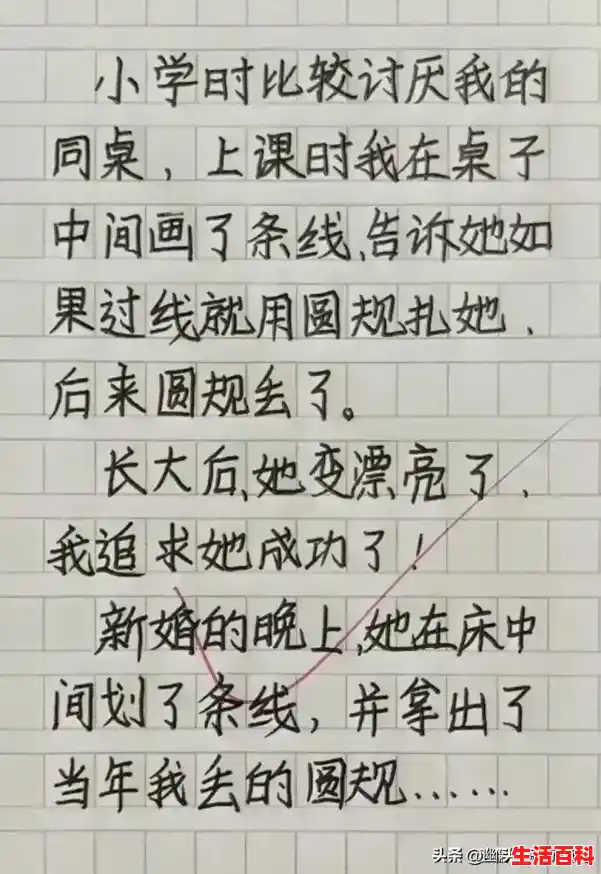 小学时比较讨厌我的
同桌，上课时我在桌子
中间画了条线、告诉她如
果过线就用圆规扎她、
后来圆规丢了。
长大后、她变漂亮了、
我追求她成功了！
新婚的晚上、她在床中
间划了条线，并拿出了
当年我丢的圆规……
头条 @幽默
生活百科